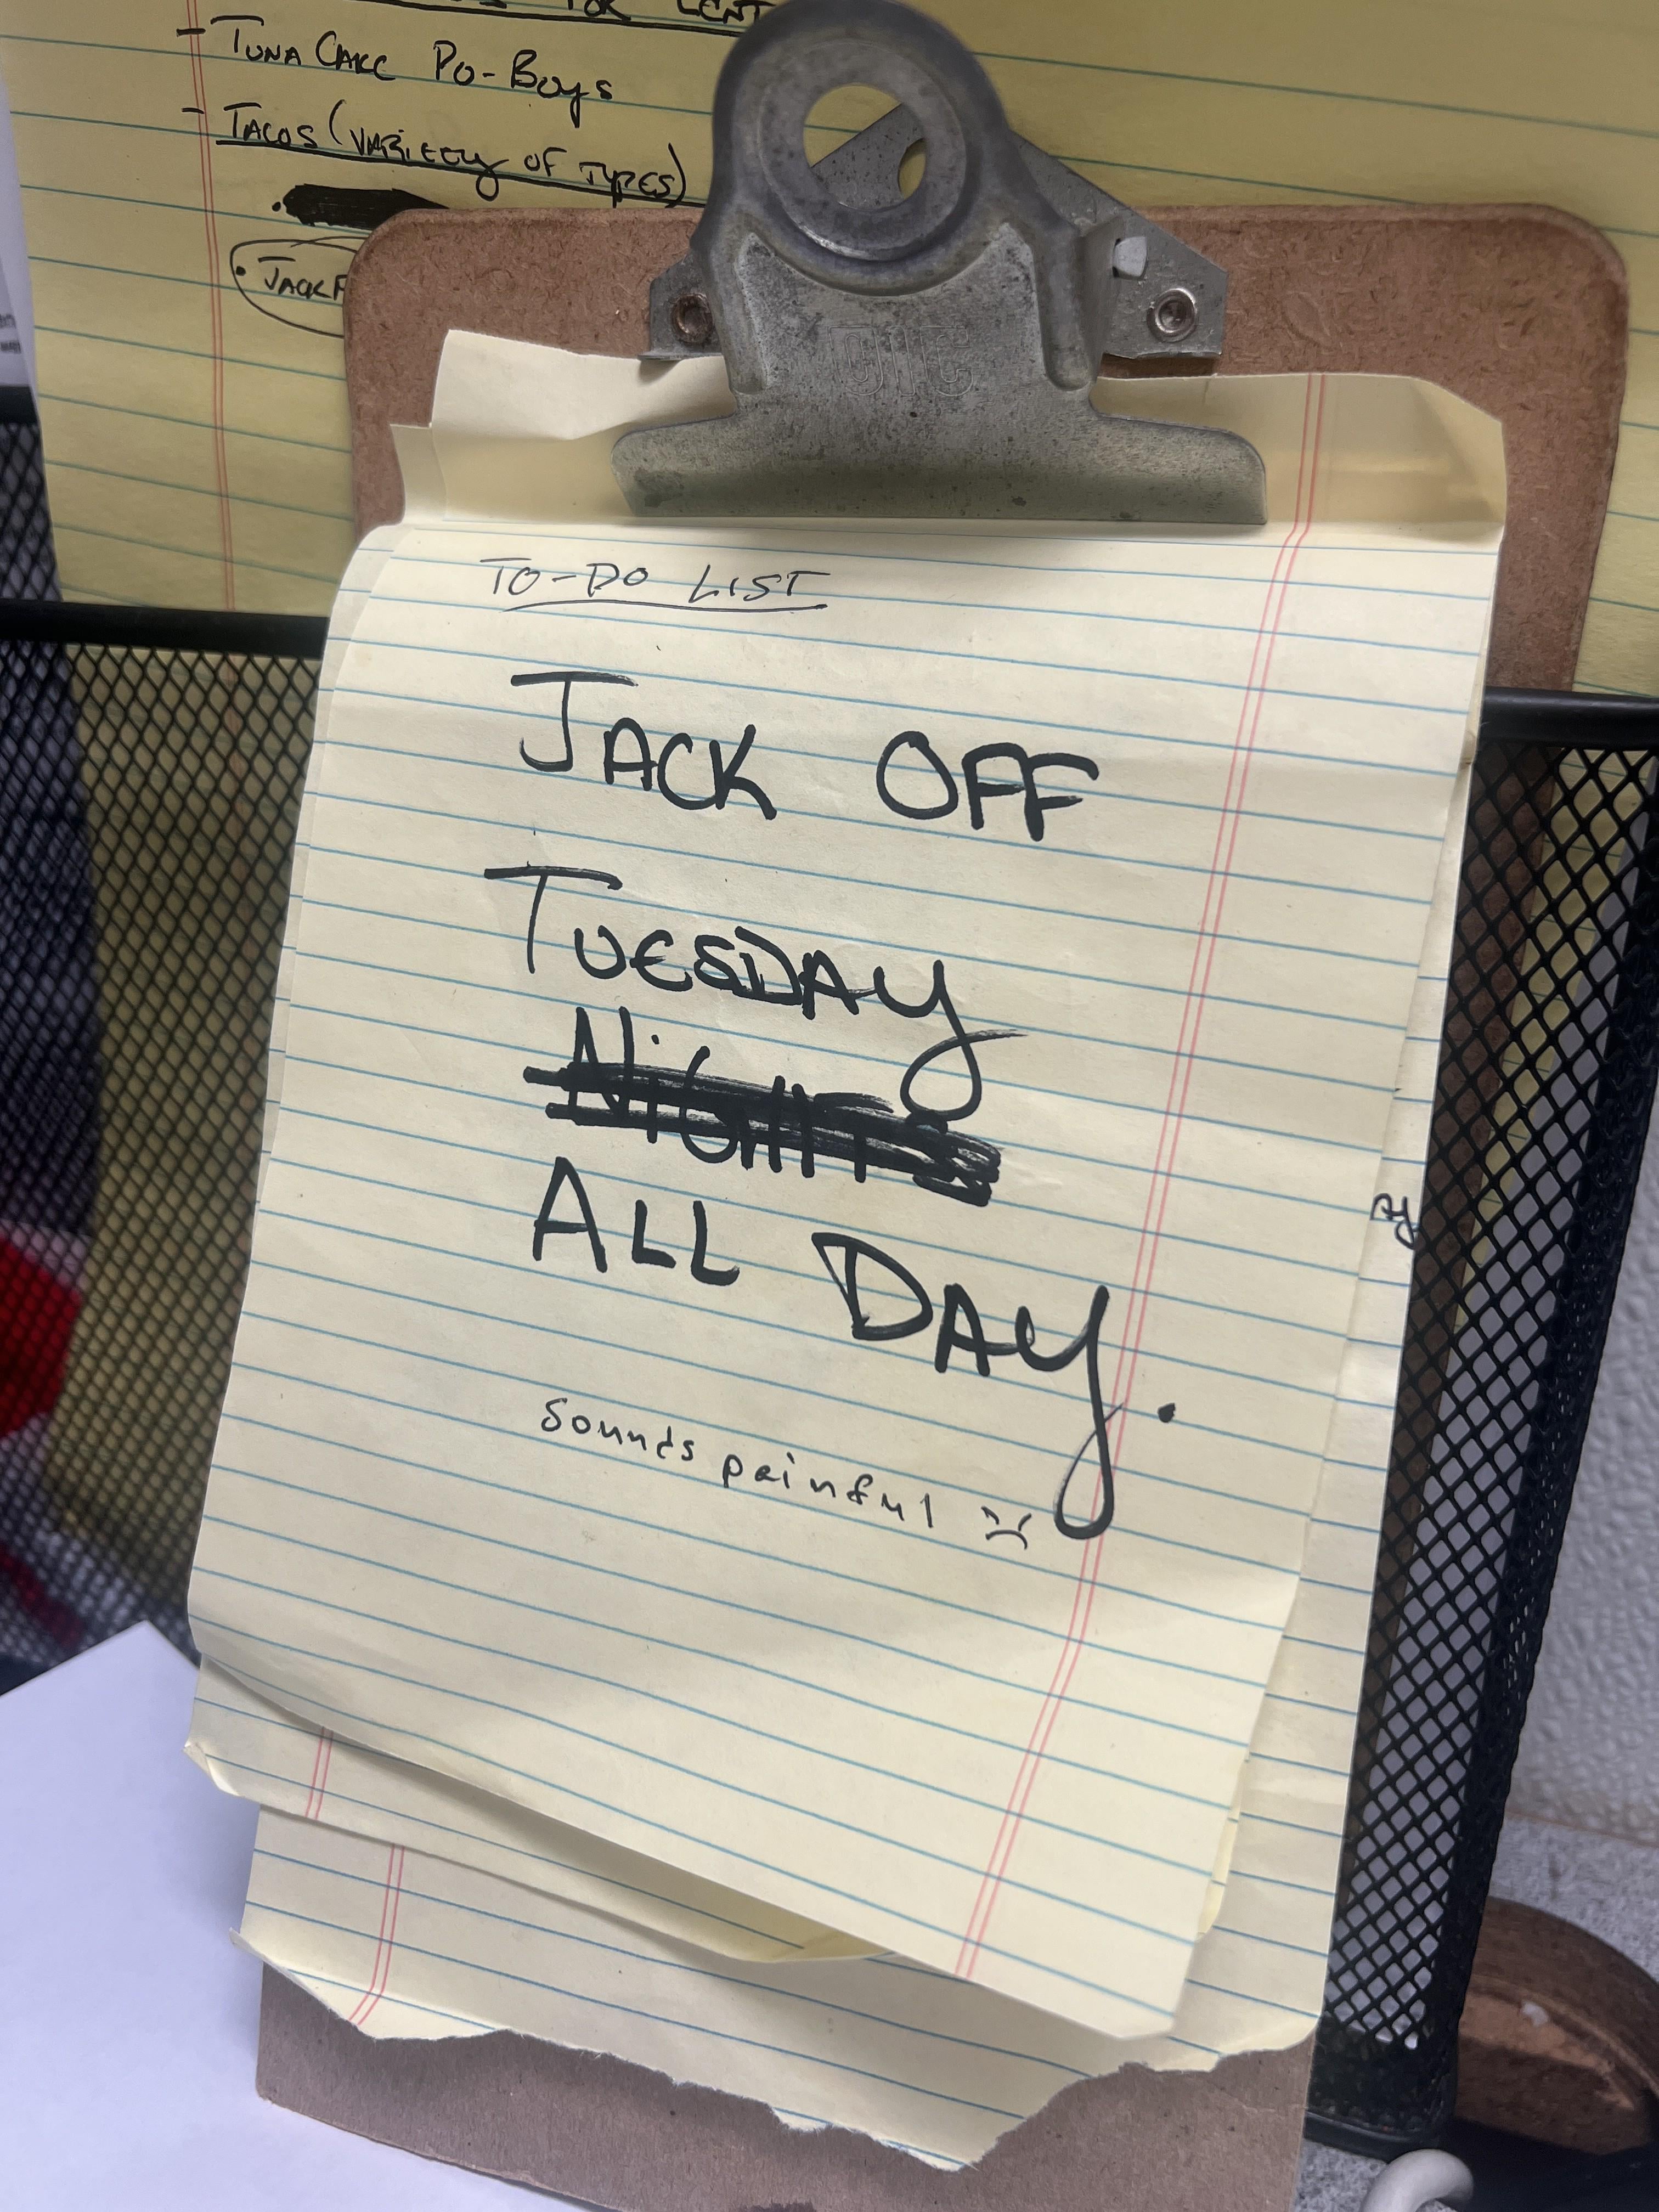 FOR LENT
- TUNA CAKE PO-BOYS
- TACOS (VARIETY OF TYPES)
OIC
TO-DO LIST
JACK OFF
TUESDAY
NiGHTS
ALL DAY.
Sounds painful :(